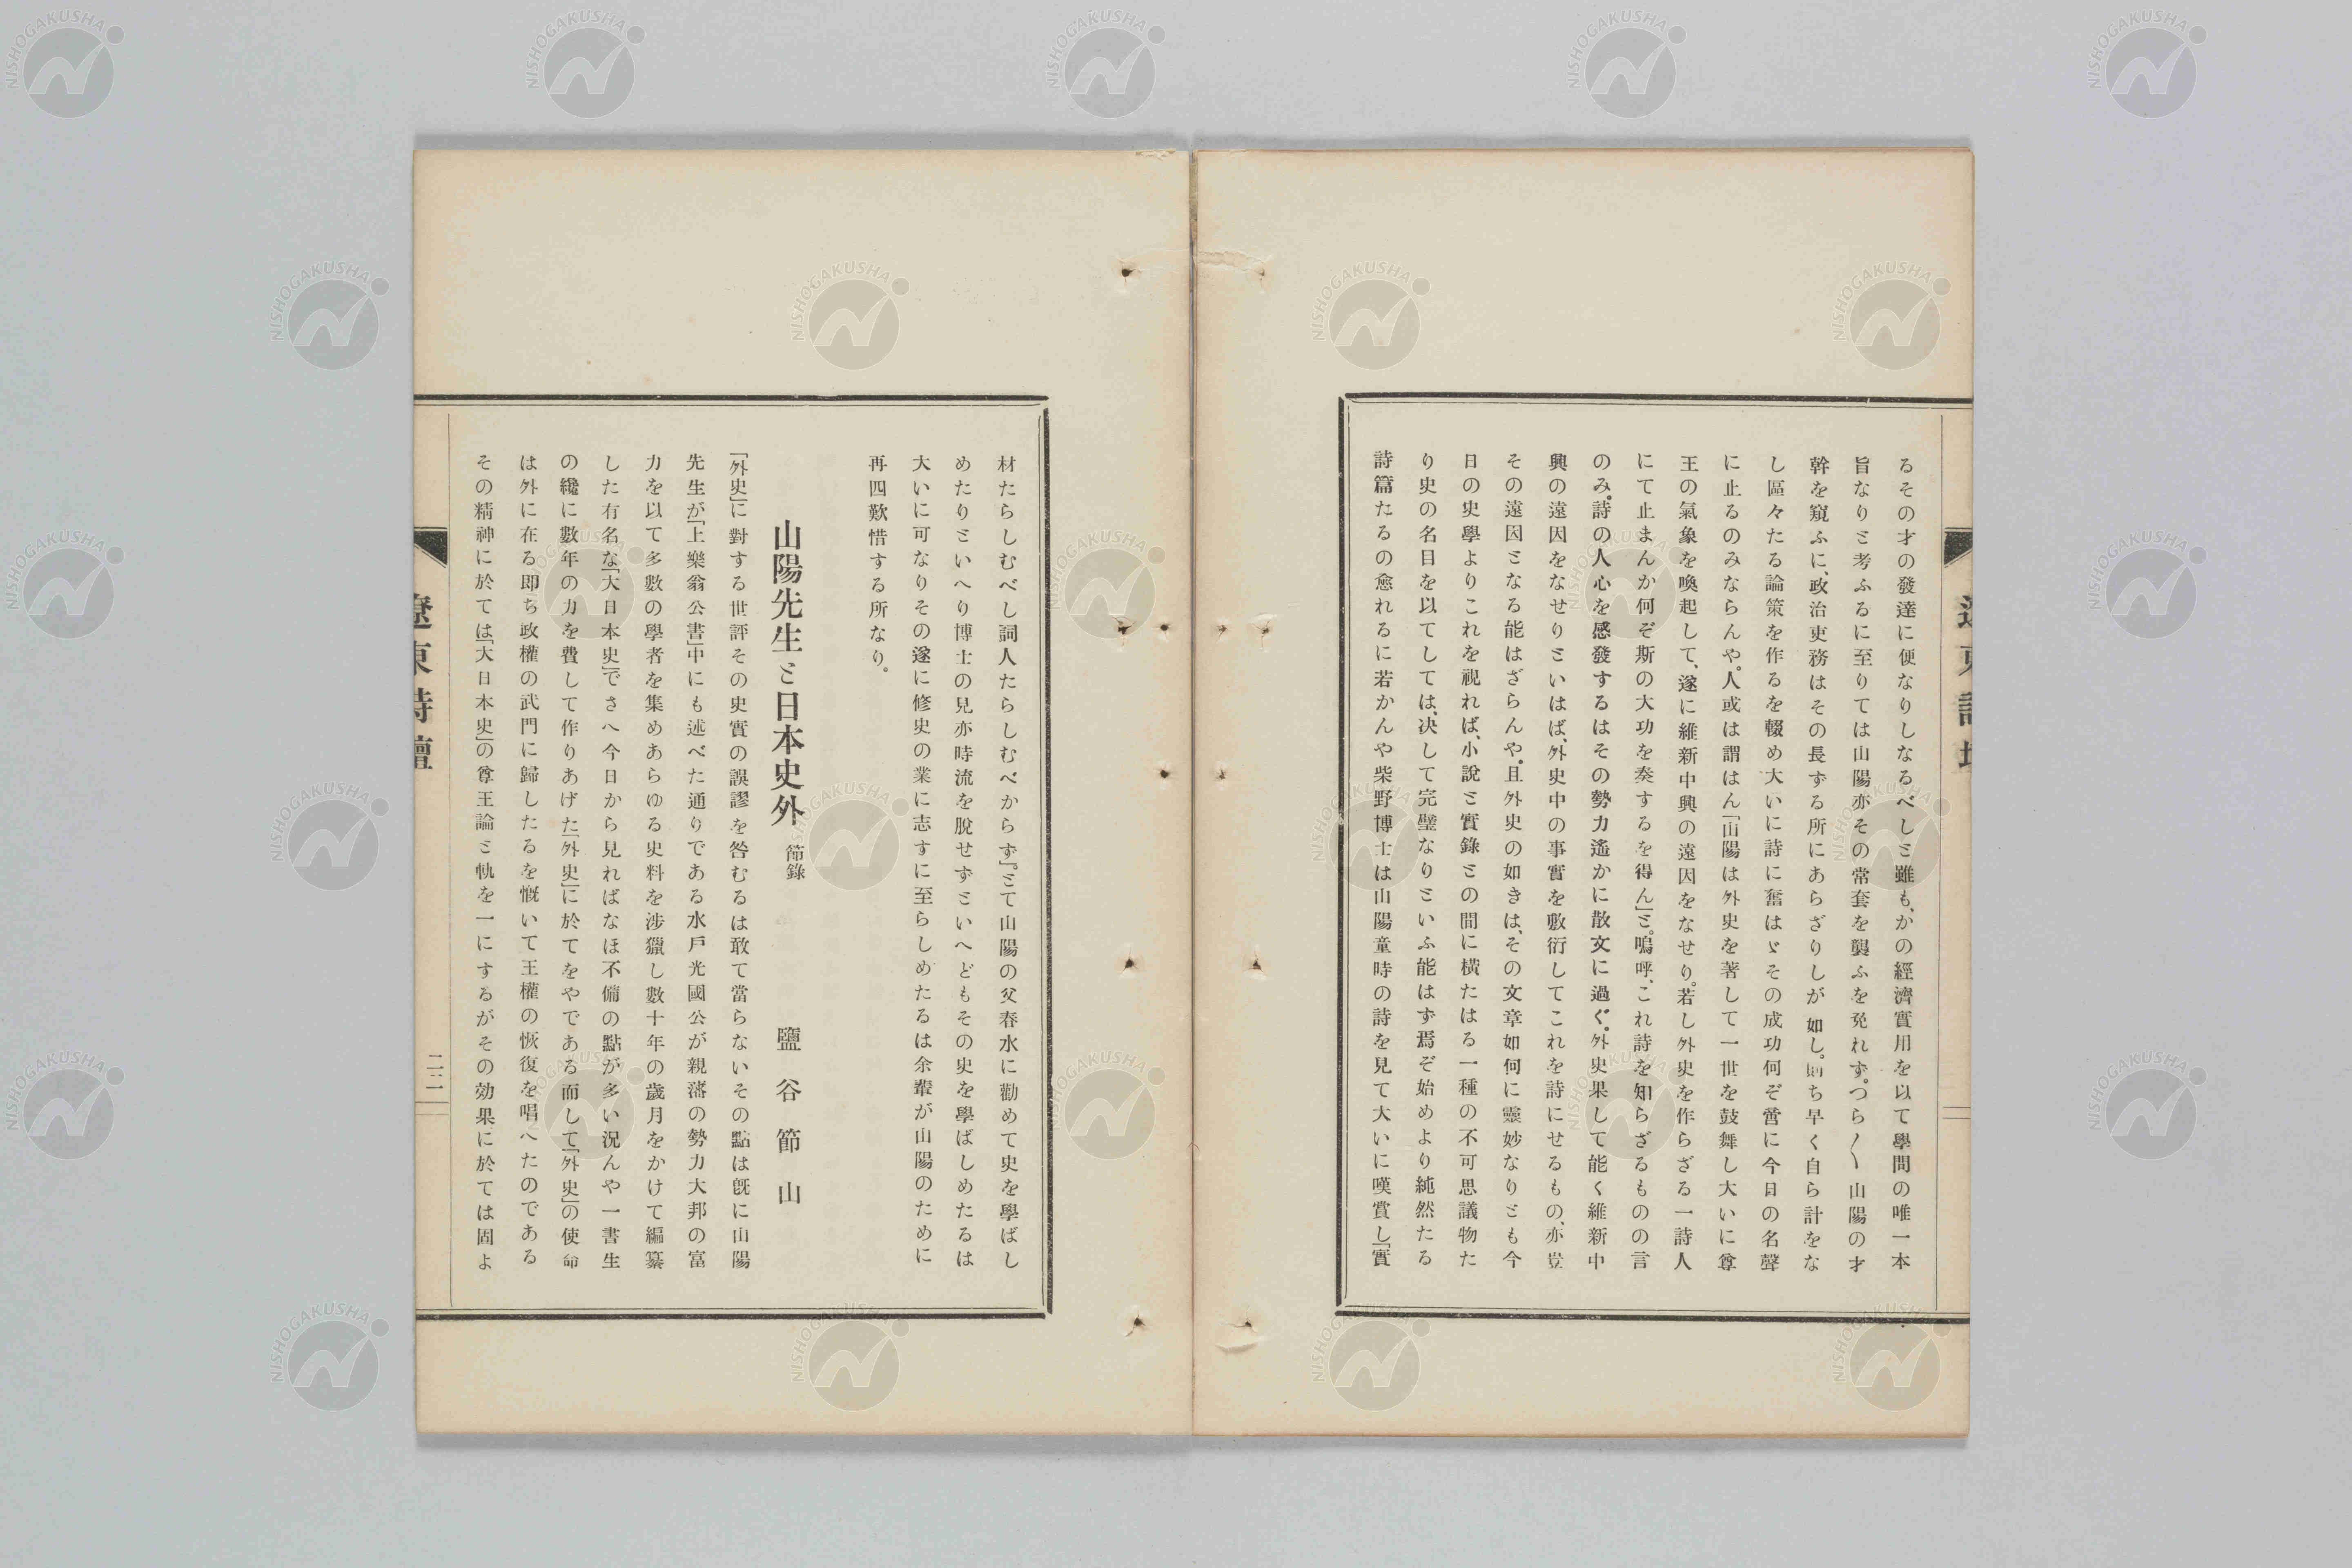 るその才の發達に便なりしなるべしと雖も、かの經濟實用を以て學問の唯一本
旨なりと考ふるに至りては山陽亦その常套を襲ふを免れず。つら〱山陽の才
幹を窺ふに、政治吏務はその長ずる所にあらざりしが如し。則ち早く自ら計をな
し區々たる論策を作るを輟め大いに詩に奮はゞその成功何ぞ啻に今日の名聲
に止るのみならんや。人或は謂はん「山陽は外史を著して一世を鼓舞し大いに尊
王の氣象を喚起して、遂に維新中興の遠因をなせり。若し外史を作らざる一詩人
にて止まんか何ぞ斯の大功を奏するを得ん」と。嗚呼、これ詩を知らざるものの言
のみ。詩の人心を感發するはその勢力遙かに散文に過ぐ。外史果して能く維新中
興の遠因をなせりといはば、外史中の事實を敷衍してこれを詩にせるもの、亦豈
その遠因となる能はざらんや。且外史の如きは、その文章如何に靈妙なりとも今
日の史學よりこれを視れば、小說と實錄との間に橫たはる一種の不可思議物た
り史の名目を以てしては、決して完璧なりといふ能はず焉ぞ始めより純然たる
詩篇たるの愈れるに若かんや柴野博士は山陽童時の詩を見て大いに嘆賞し「實
材たらしむべし詞人たらしむべからず」とて山陽の父春水に勸めて史を學ばし
めたりといへり博士の見亦時流を脫せずといへどもその史を學ばしめたるは
大いに可なりその遂に修史の業に志すに至らしめたるは余輩が山陽のために
再四歎惜する所なり。
山陽先生と日本史外 節錄
鹽谷節山
「外史」に對する世評その史實の誤謬を咎むるは敢て當らないその點は既に山陽
先生が「上樂翁公書」中にも述べた通りである水戶光國公が親藩の勢力大邦の富
力を以て多數の學者を集めあらゆる史料を涉獵し數十年の歲月をかけて編纂
した有名な「大日本史」でさへ今日から見ればなほ不備の點が多い況んや一書生
の纔に數年の力を費して作りあげた「外史」に於てをやである而して「外史」の使命
は外に在る卽ち政權の武門に歸したるを慨いて王權の恢復を唱へたのである
その精神に於ては「大日本史」の尊王論と軌を一にするがその効果に於ては固よ
遼東詩壇
NISHOGAKUSHA